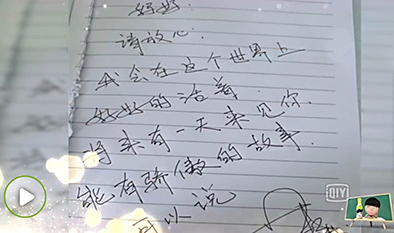 好好.
请放心.
我会在这个世界上
好好的活着.
将来有一天来见你.
能有骄傲的故事.
可以说
QIY